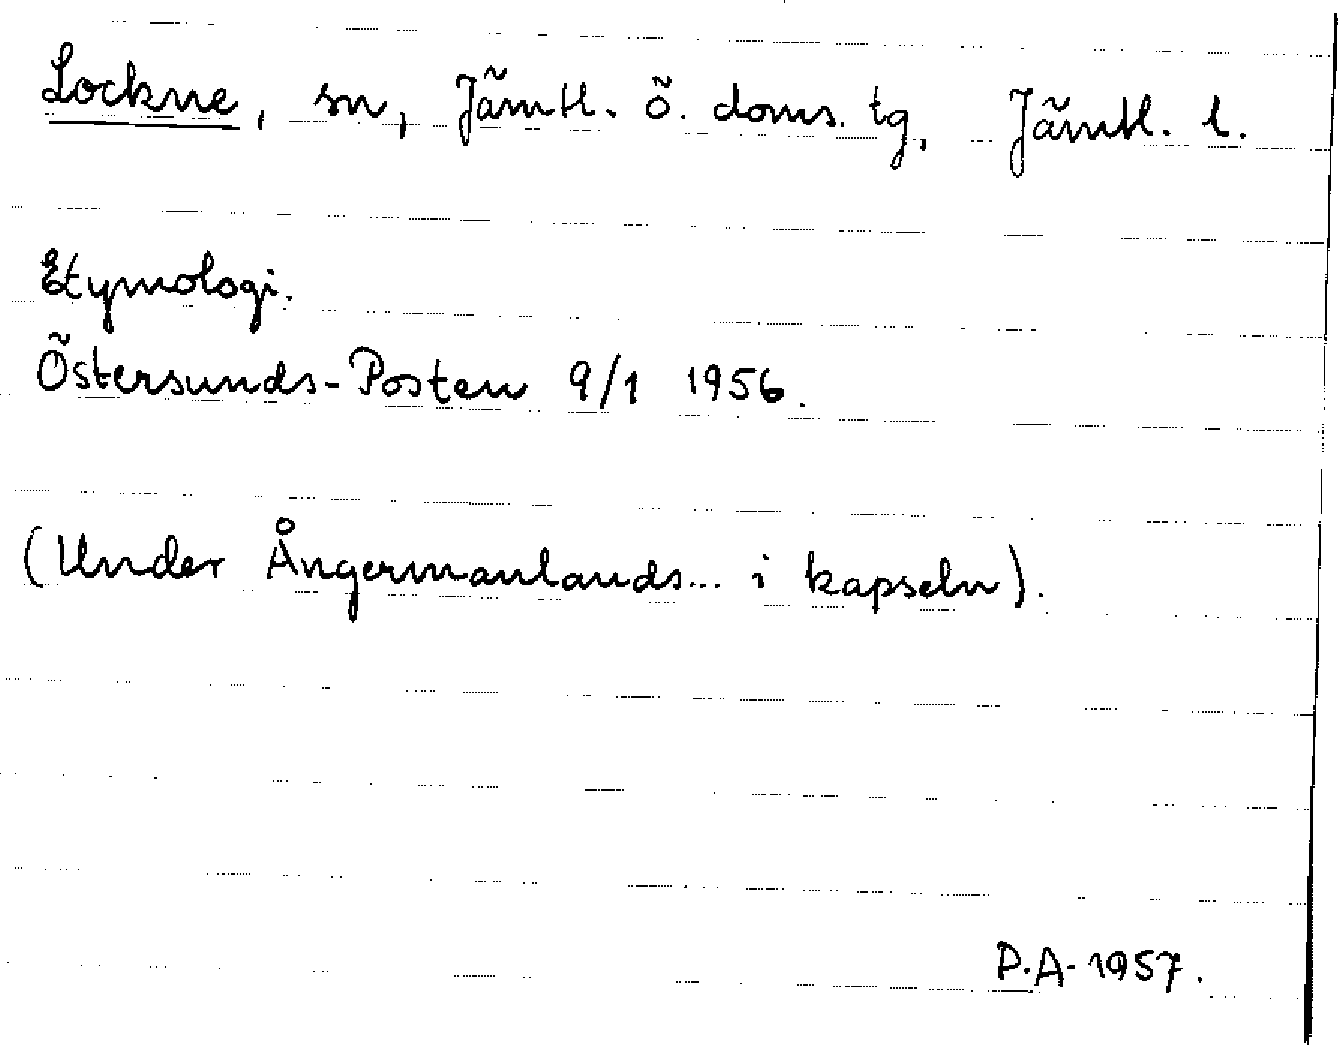 Lockne, sn, Jämtl. ö. doms. tg, Jämtl. l.
Etymologi.
Östersunds-Posten 9/1 1956.
(Under Ångermanlands... i kapseln).
P.A. 1957.